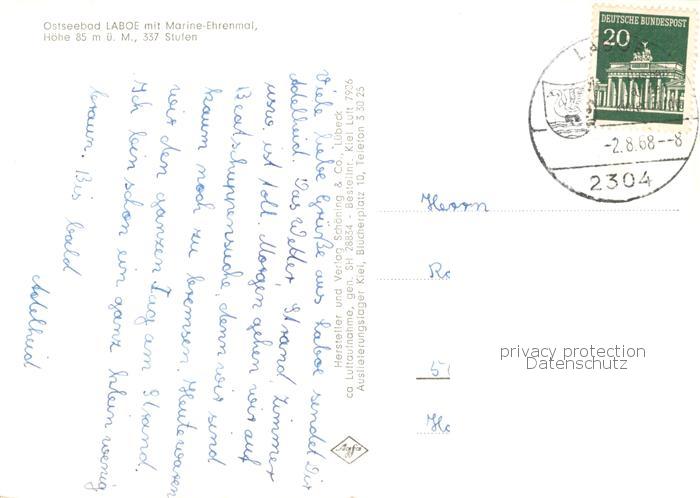 Ostseebad LABOE mit Marine-Ehrenmal,
Höhe 85 m ü. M., 337 Stufen
Viele liebe Grüße aus Laboe sendet Dir
Adelheid. Das Wetter, Strand, Zimmer
usw. ist toll. Morgen gehen wir auf
Beatschuppensuche, denn wir sind
kaum noch zu bremsen. Heute waren
wir den ganzen Tag am Strand.
Ich bin schon ein ganz klein wenig
braun. Bis bald
Adelheid
Hersteller und Verlag Schöning & Co., Lübeck
ca Luftaufnahme, gen. SH 28834 - Bestellnr. Kiel Luft 7926
Auslieferungslager Kiel, Blücherplatz 10, Telefon 3 30 25
Agfa
DEUTSCHE BUNDESPOST
20
-2.8.68--8
2304
Herrn
privacy protection
Datenschutz